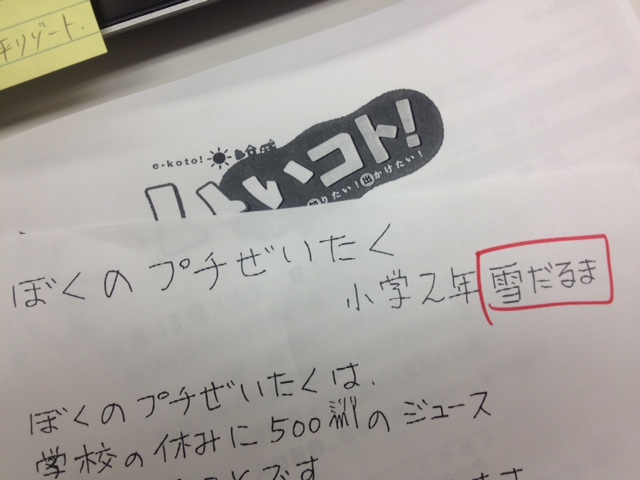 リゾート.
e-koto!
いいコト!
りたい!出かけたい!
ぼくのプチぜいたく
小学2年 雪だるま
ぼくのプチぜいたくは、
学校の休みに500mlのジュース
とです